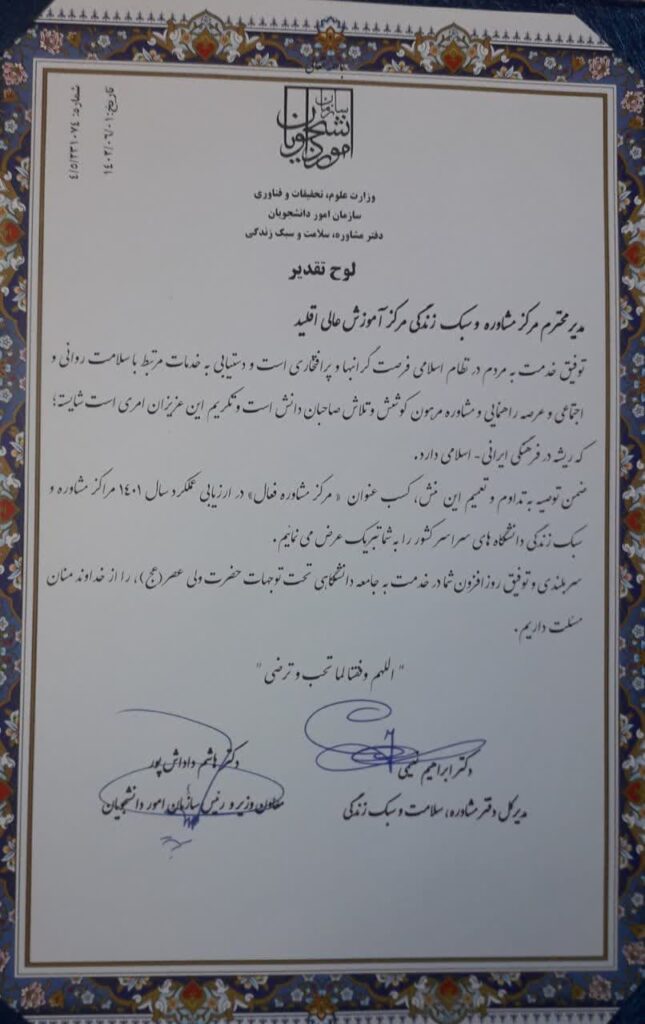 سازمان
امور دانشجویان
شماره: ۴/۵/۲۳۱۰۷۴
تاریخ: ۱۴۰۲/۰۶/۱۰
وزارت علوم، تحقیقات و فناوری
سازمان امور دانشجویان
دفتر مشاوره، سلامت و سبک زندگی
لوح تقدیر
مدیر محترم مرکز مشاوره و سبک زندگی مرکز آموزش عالی اقلید
توفیق خدمت به مردم در نظام اسلامی فرصت گرانبها و پرافتخاری است و دستیابی به خدمات مرتبط با سلامت روانی و
اجتماعی و عرصه راهنمایی و مشاوره مرهون کوشش و تلاش صاحبان دانش است و تکریم این عزیزان امری است شایسته؛
که ریشه در فرهنگی ایرانی- اسلامی دارد.
ضمن توصیه به تداوم و تعمیم این منش، کسب عنوان « مرکز مشاوره فعال» در ارزیابی عملکرد سال ۱۴۰۱ مراکز مشاوره و
سبک زندگی دانشگاه های سراسر کشور را به شما تبریک عرض می نمائیم.
سربلندی و توفیق روزافزون شما در خدمت به جامعه دانشگاهی تحت توجهات حضرت ولی عصر(عج)، را از خداوند منان
مسئلت داریم.
" اللهم وفقنا لما تحب و ترضی "
دکتر ابراهیم نعیمی
مدیرکل دفتر مشاوره، سلامت و سبک زندگی
دکتر هاشم داداش پور
معاون وزیر و رئیس سازمان امور دانشجویان